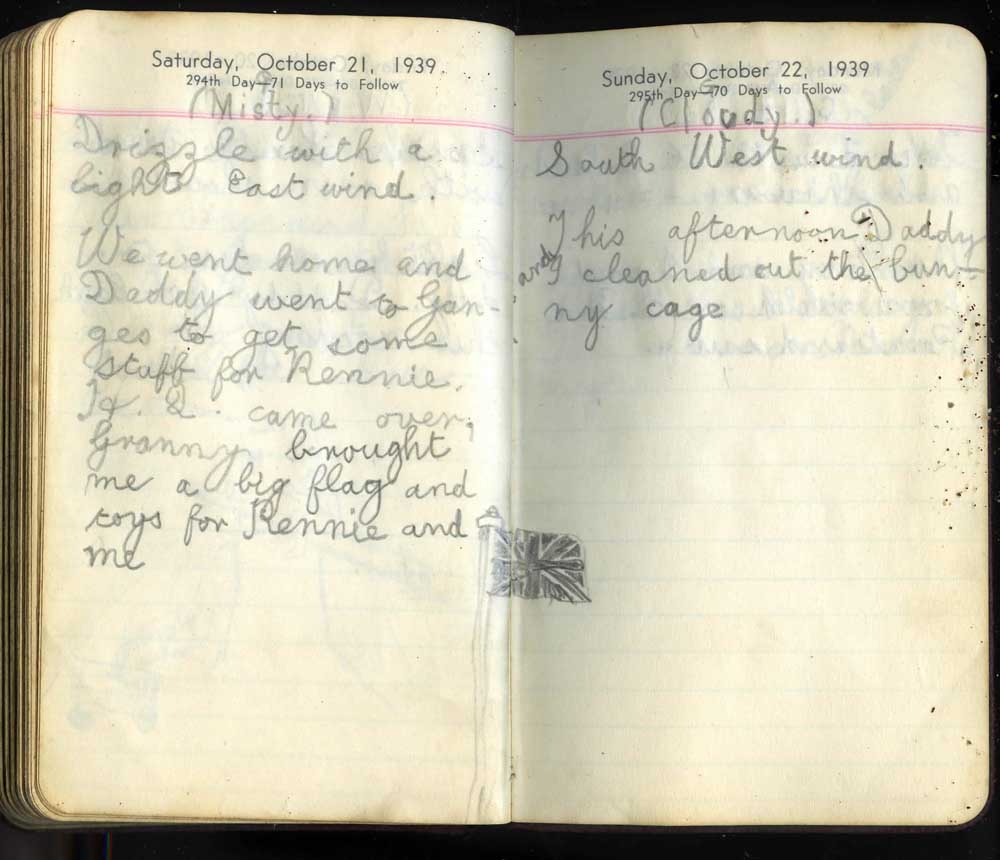 Saturday, October 21, 1939.
294th Day—71 Days to Follow
(Misty.)
Drizzle with a
light East wind.
We went home and
Daddy went to Gan-
ges to get some
stuff for Rennie.
came over,
Granny brought
me a big flag and
toys for Rennie and
me
Sunday, October 22, 1939
295th Day—70 Days to Follow
(Cloudy.)
South West wind.
This afternoon Daddy
and I cleaned out the bun-
ny cage